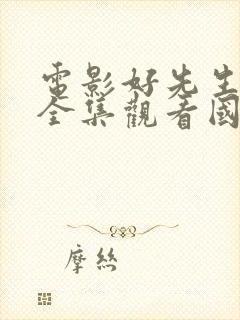 電影好先生
全集觀看國
摩絲